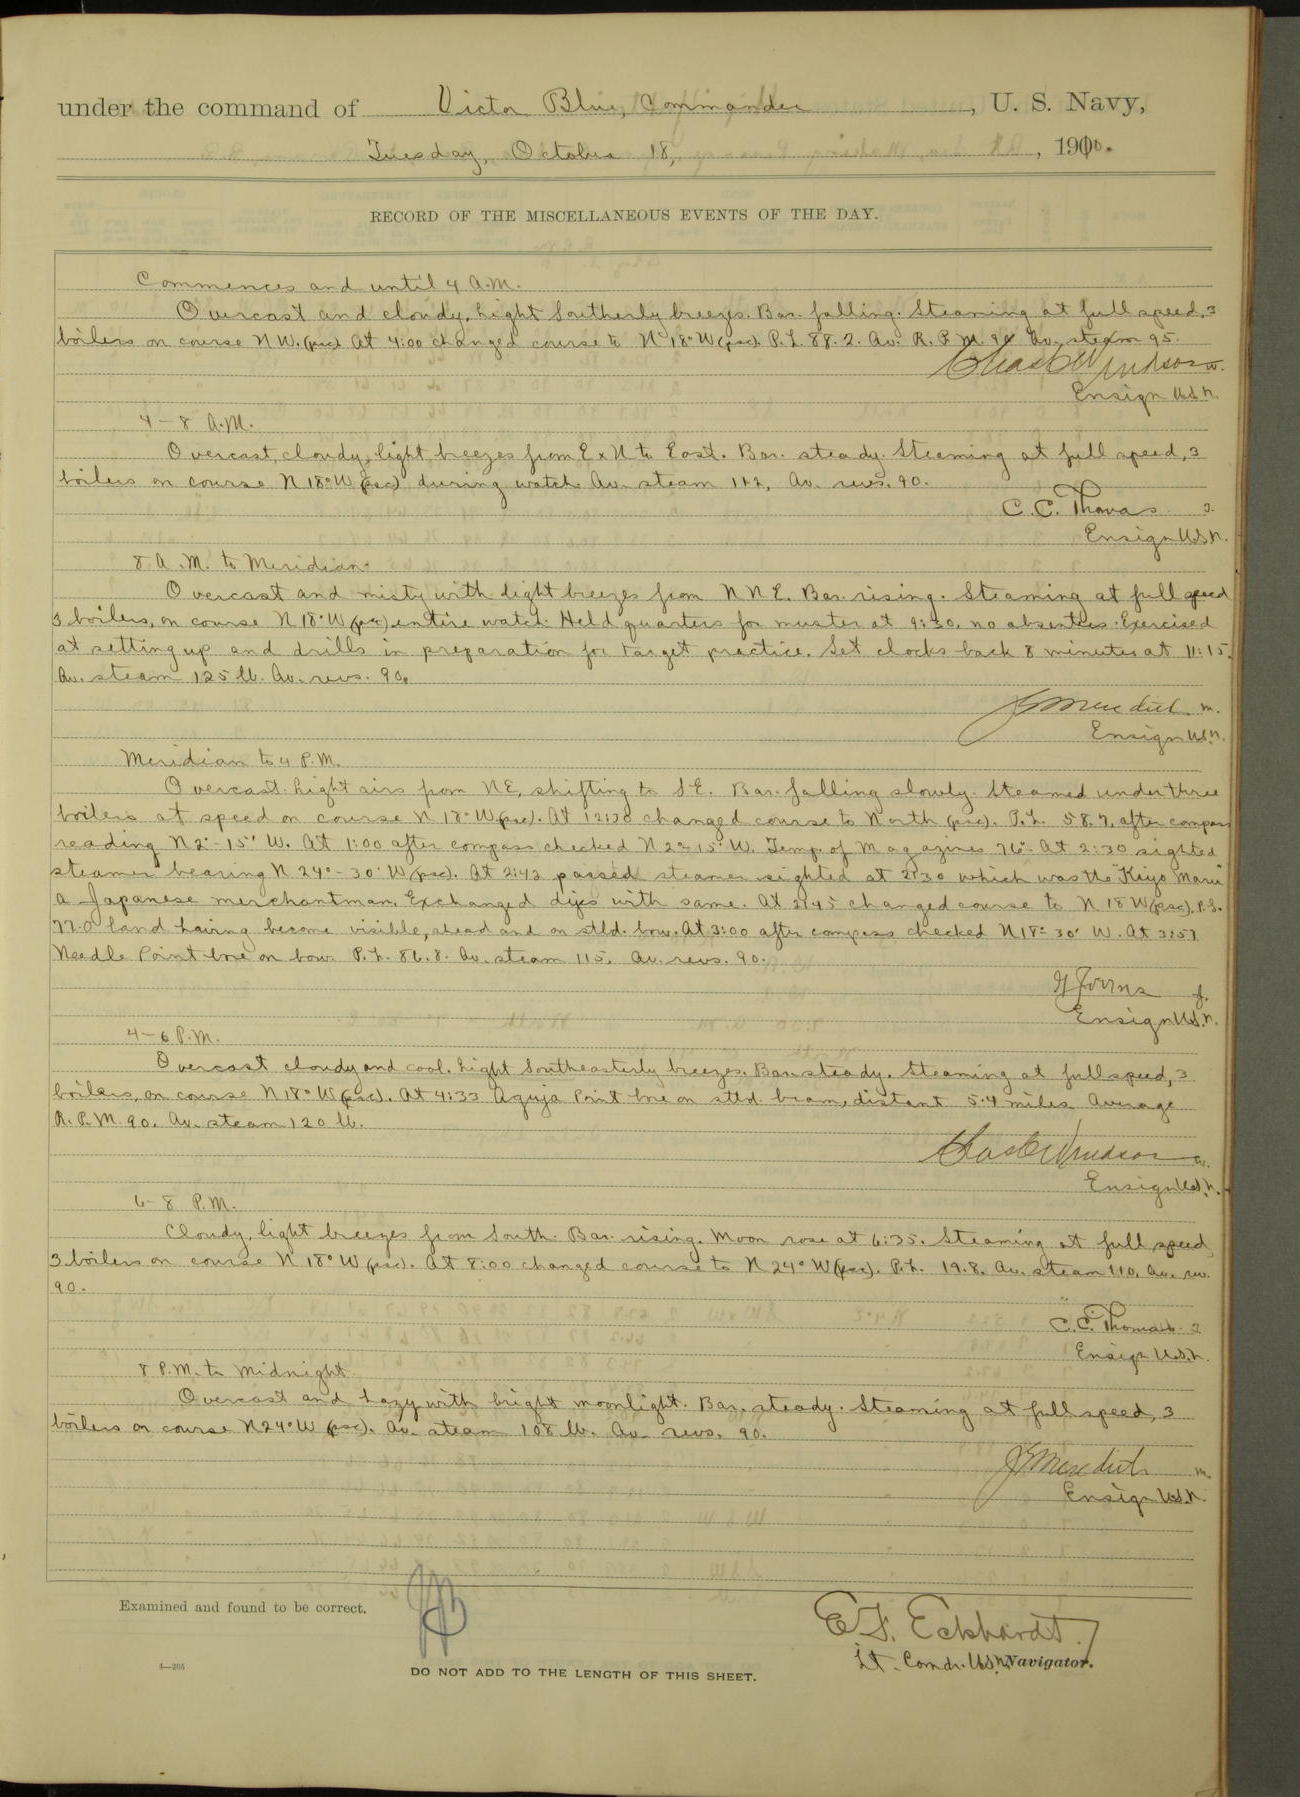 under the command of Victor Blue, Commander, U. S. Navy,
Tuesday, October 18, 1910.
RECORD OF THE MISCELLANEOUS EVENTS OF THE DAY.
Commences and until 4 A.M.
Overcast and cloudy, light Southerly breezes. Bar. falling. Steaming at full speed, 3
boilers on course NW. (psc) At 4:00 changed course to N 18° W (psc) P.L. 88.2. Av. R.P.M. 90 Av. steam 95.
Chas C Windsor w.
Ensign U.S.N.
4-8 A.M.
Overcast, cloudy, light breezes from E x N to East. Bar. steady. Steaming at full speed, 3
boilers on course N 18° W (psc) during watch. Av. steam 112, Av. revs. 90.
C.C. Thomas
Ensign U.S.N.
8 A.M. to Meridian
Overcast and misty with light breezes from NNE. Bar. rising. Steaming at full speed
3 boilers, on course N 18° W (psc) entire watch. Held quarters for muster at 9:30, no absentees. Exercised
at setting up and drills in preparation for target practice. Set clocks back 8 minutes at 11:15.
Av. steam 125 lb. Av. revs. 90.
Meredith m.
Ensign U.S.N.
Meridian to 4 P.M.
Overcast. Light airs from NE, shifting to SE. Bar. falling slowly. Steamed under three
boilers at speed on course N 18° W (psc). At 12:30 changed course to North (psc). P.L. 58.7, after compass
reading N 2°-15' W. At 1:00 after compass checked N 2° 15' W. Temp. of Magazines 76°. At 2:30 sighted
steamer bearing N 24°-30' W (psc). At 2:42 passed steamer sighted at 2:30 which was the "Kiyo Maru"
a Japanese merchantman. Exchanged dips with same. At 2:45 changed course to N 18 W (psc), P.L.
77.0 land having become visible, ahead and on stbd. bow. At 3:00 after compass checked N 18° 30' W. At 3:57
Needle Point bore on bow. P.L. 86.8. Av. steam 115. Av. revs. 90.
Ensign U.S.N.
4-6 P.M.
Overcast cloudy and cool. Light Southeasterly breezes. Bar. steady. Steaming at full speed, 3
boilers, on course N 18° W (psc). At 4:33 Aguja Point bore on stbd. beam, distant 5.4 miles. Average
R.P.M. 90. Av. steam 120 lb.
Chas C Windsor w.
Ensign U.S.N.
6-8 P.M.
Cloudy, light breezes from South. Bar. rising. Moon rose at 6:35. Steaming at full speed,
3 boilers on course N 18° W (psc). At 8:00 changed course to N 24° W (psc). P.L. 19.8. Av. steam 110. Av. rev.
90.
C.C. Thomas
Ensign U.S.N.
8 P.M. to Midnight
Overcast and hazy with bright moonlight. Bar. steady. Steaming at full speed, 3
boilers on course N 24° W (psc). Av. steam 108 lb. Av. revs. 90.
Meredith m.
Ensign U.S.N.
Examined and found to be correct.
E.F. Eckhardt
Lt. Comdr. U.S.N. Navigator.
DO NOT ADD TO THE LENGTH OF THIS SHEET.